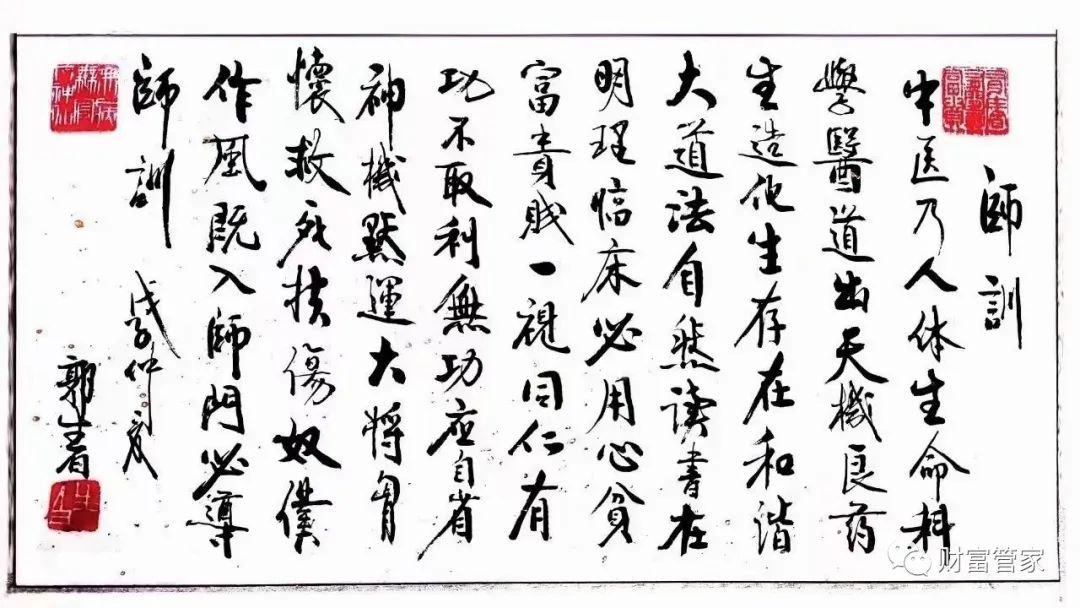 師訓
中医乃人体生命科
學醫道出天機良药
生造化生存在和谐
大道法自然读書在
明理临床必用心贫
富贵贱一視同仁有
功不取利無功应自省
神機默運大将胷
懷救死扶傷奴僕
作風既入師門必遵
師訓
戊子仲夏
郭生春
财富管家